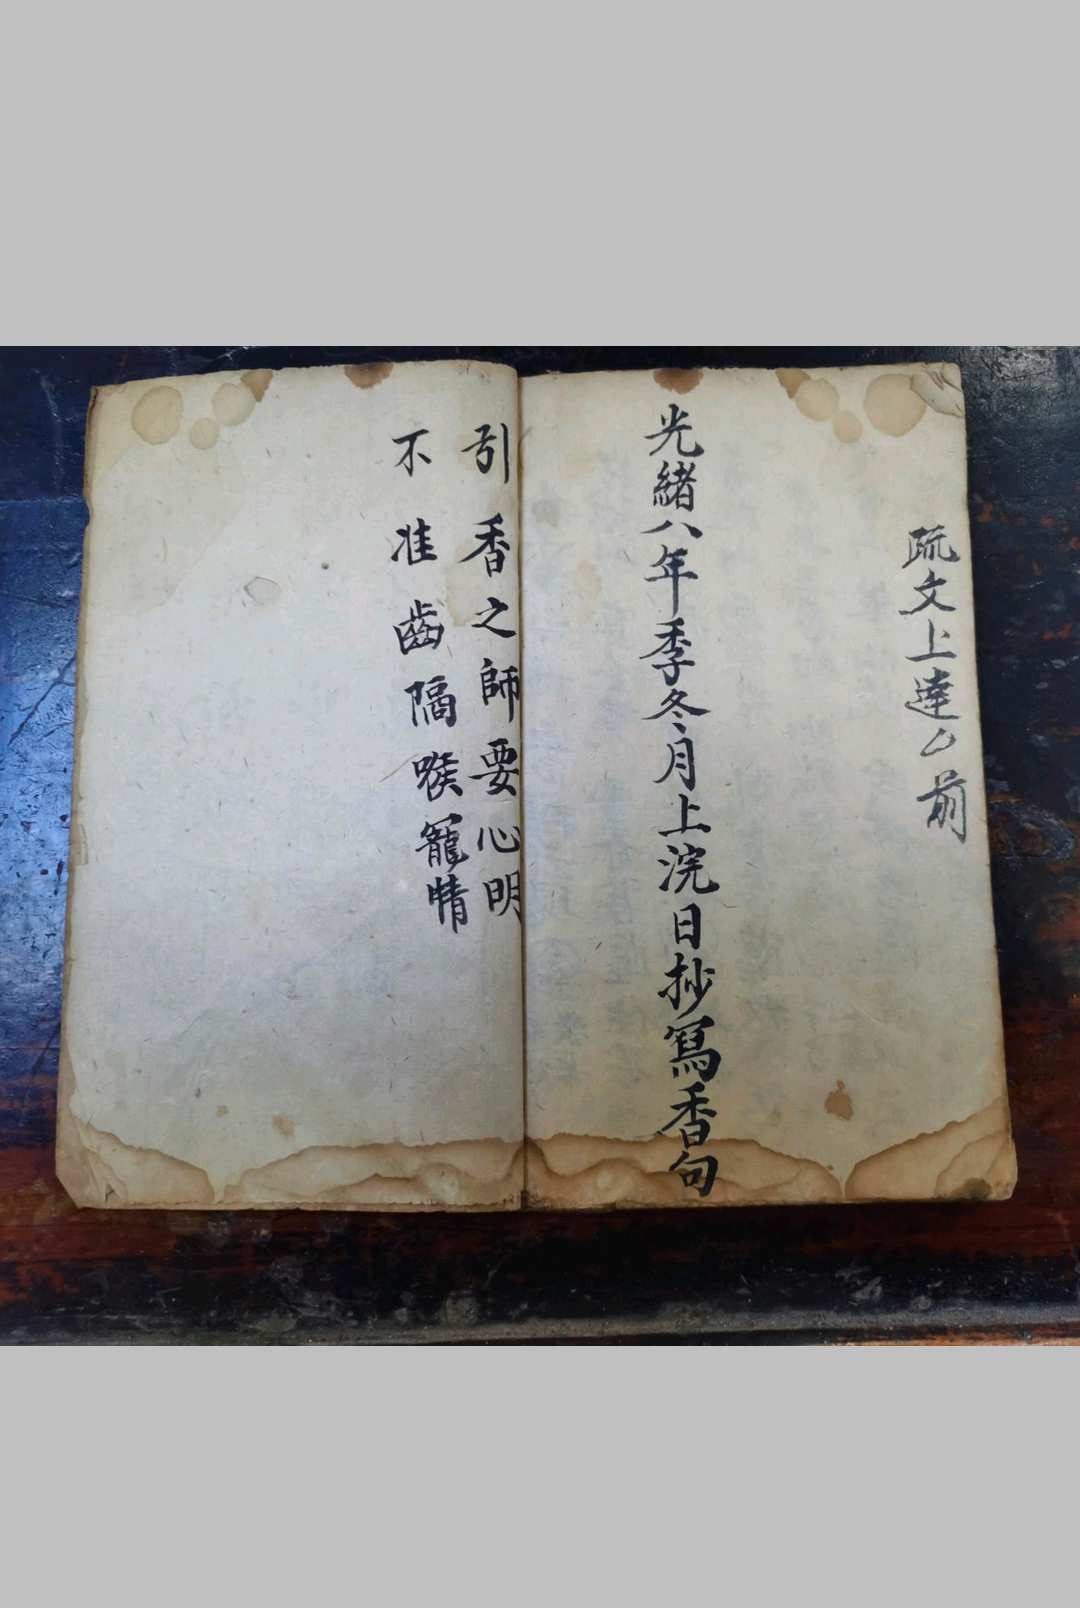 疏文上達厶前
光緒八年季冬月上浣日抄寫香句
引香之師要心明
不准齒隔喉寵情